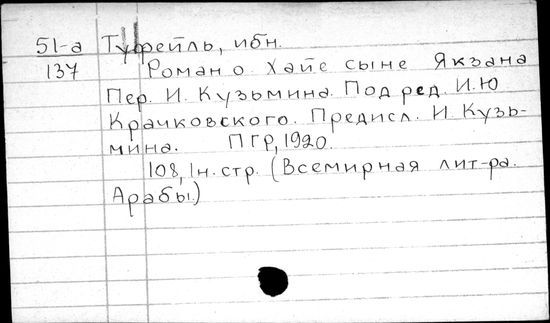 51-а Туфейль, ибн.
137 Роман о Хайе сыне Якзана
Пер. И. Кузьмина. Под ред. И.Ю
Крачковского. Предисл. И. Кузь-
мина. ПГР, 1920.
108, 1н. стр. (Всемирная лит-ра.
Арабы.)